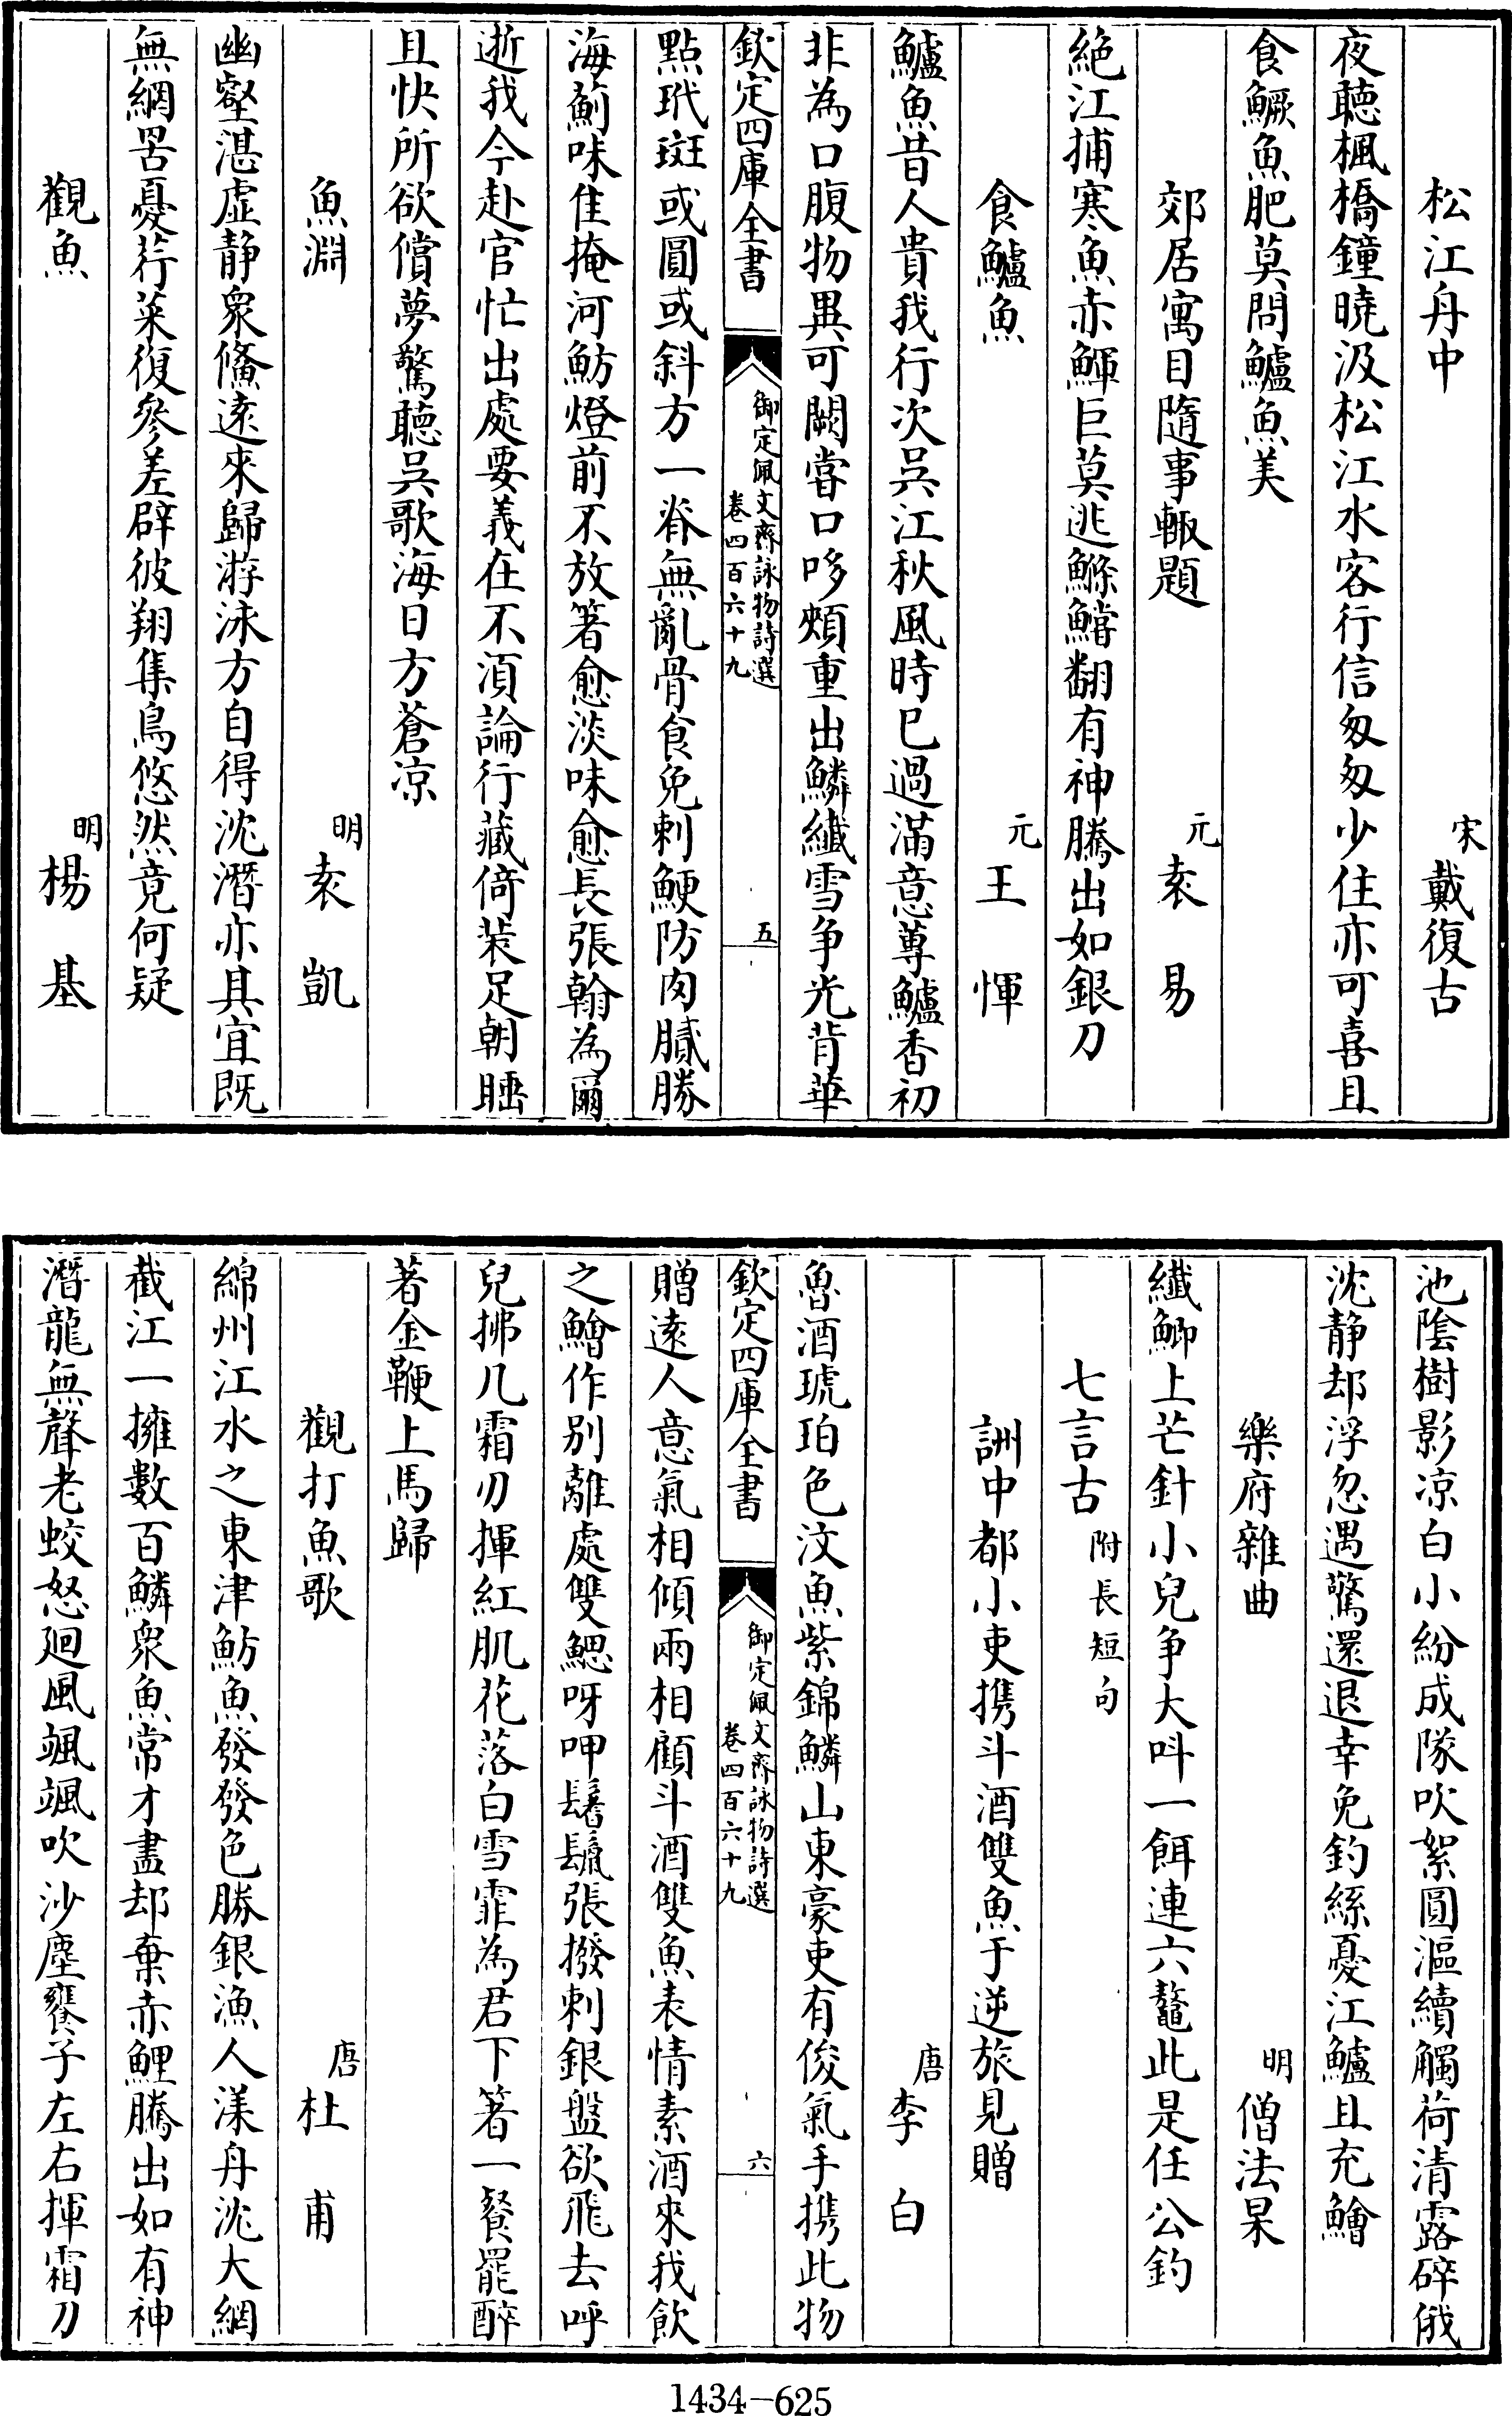 松江舟中
宋戴復古
夜聽楓橋鐘曉汲松江水客行信匆匆少住亦可喜且
食鱖魚肥莫問鱸魚美
郊居寓目隨事輙題
元袁易
絶江捕寒魚赤鯶巨莫逃鰷鱨翻有神騰出如銀刀
食鱸魚
元王惲
鱸魚昔人貴我行次吳江秋風時已過滿意蓴鱸香初
非為口腹物異可闕嘗口哆頰重出鱗纖雪争光背華
欽定四庫全書
御定佩文齋詠物詩選
卷四百六十九
五
點玳斑或圓或斜方一脊無亂骨食免刺鯁防肉膩勝
海薊味隹掩河魴燈前不放箸愈淡味愈長張翰為爾
逝我今赴官忙出處要義在不湏論行藏倚裝足朝睡
且快所欲償夢驚聽吳歌海日方蒼凉
魚淵
明袁凱
幽壑湛虚静衆鯈遠來歸游泳方自得沈潛亦具宜既
無網罟憂荇菜復參差辟彼翔集鳥悠然竟何疑
觀魚
明楊基
池陰樹影凉白小紛成隊吹絮圓漚續觸荷清露碎俄
沈静却浮忽遇驚還退幸免釣絲憂江鱸且充鱠
樂府雜曲
明僧法杲
纖鯽上芒針小兒争大呌一餌連六鼇此是任公釣
七言古附長短句
詶中都小吏携斗酒雙魚于逆旅見贈
唐李白
魯酒琥珀色汶魚紫錦鱗山東豪吏有俊氣手携此物
欽定四庫全書
御定佩文齋詠物詩選
卷四百六十九
六
贈逺人意氣相傾兩相顧斗酒雙魚表情素酒來我飲
之鱠作别離處雙鰓呀呷鬐鬣張撥刺銀盤欲飛去呼
兒拂几霜刃揮紅肌花落白雪霏為君下箸一餐罷醉
著金鞭上馬歸
觀打魚歌
唐杜甫
綿州江水之東津魴魚發發色勝銀漁人漾舟沈大網
截江一擁數百鱗衆魚常才盡却棄赤鯉騰出如有神
潛龍無聲老蛟怒廻風颯颯吹沙塵饔子左右揮霜刀
1434-625